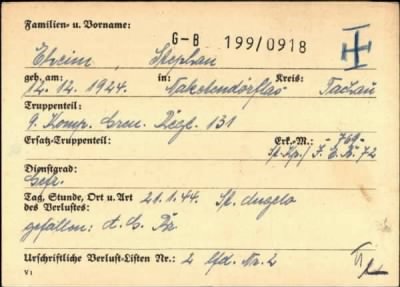 Familien- u. Vorname:
G-B 199/0918
Eheim, Stephan
geb. am: in: Kreis:
12.12.1924. Naketendörflas Tachau
Truppenteil:
9. Komp. Gren. Regt. 131
Ersatz-Truppenteil: Erk.-M.: -760-
St.Kp./ J.E.B. 72
Dienstgrad:
Gefr.
Tag, Stunde, Ort u. Art 21.1.44. St. Angelo
des Verlustes:
gefallen: A.G. Br.
Urschriftliche Verlust-Listen Nr.: 2 lfd. Nr. 2
V 1